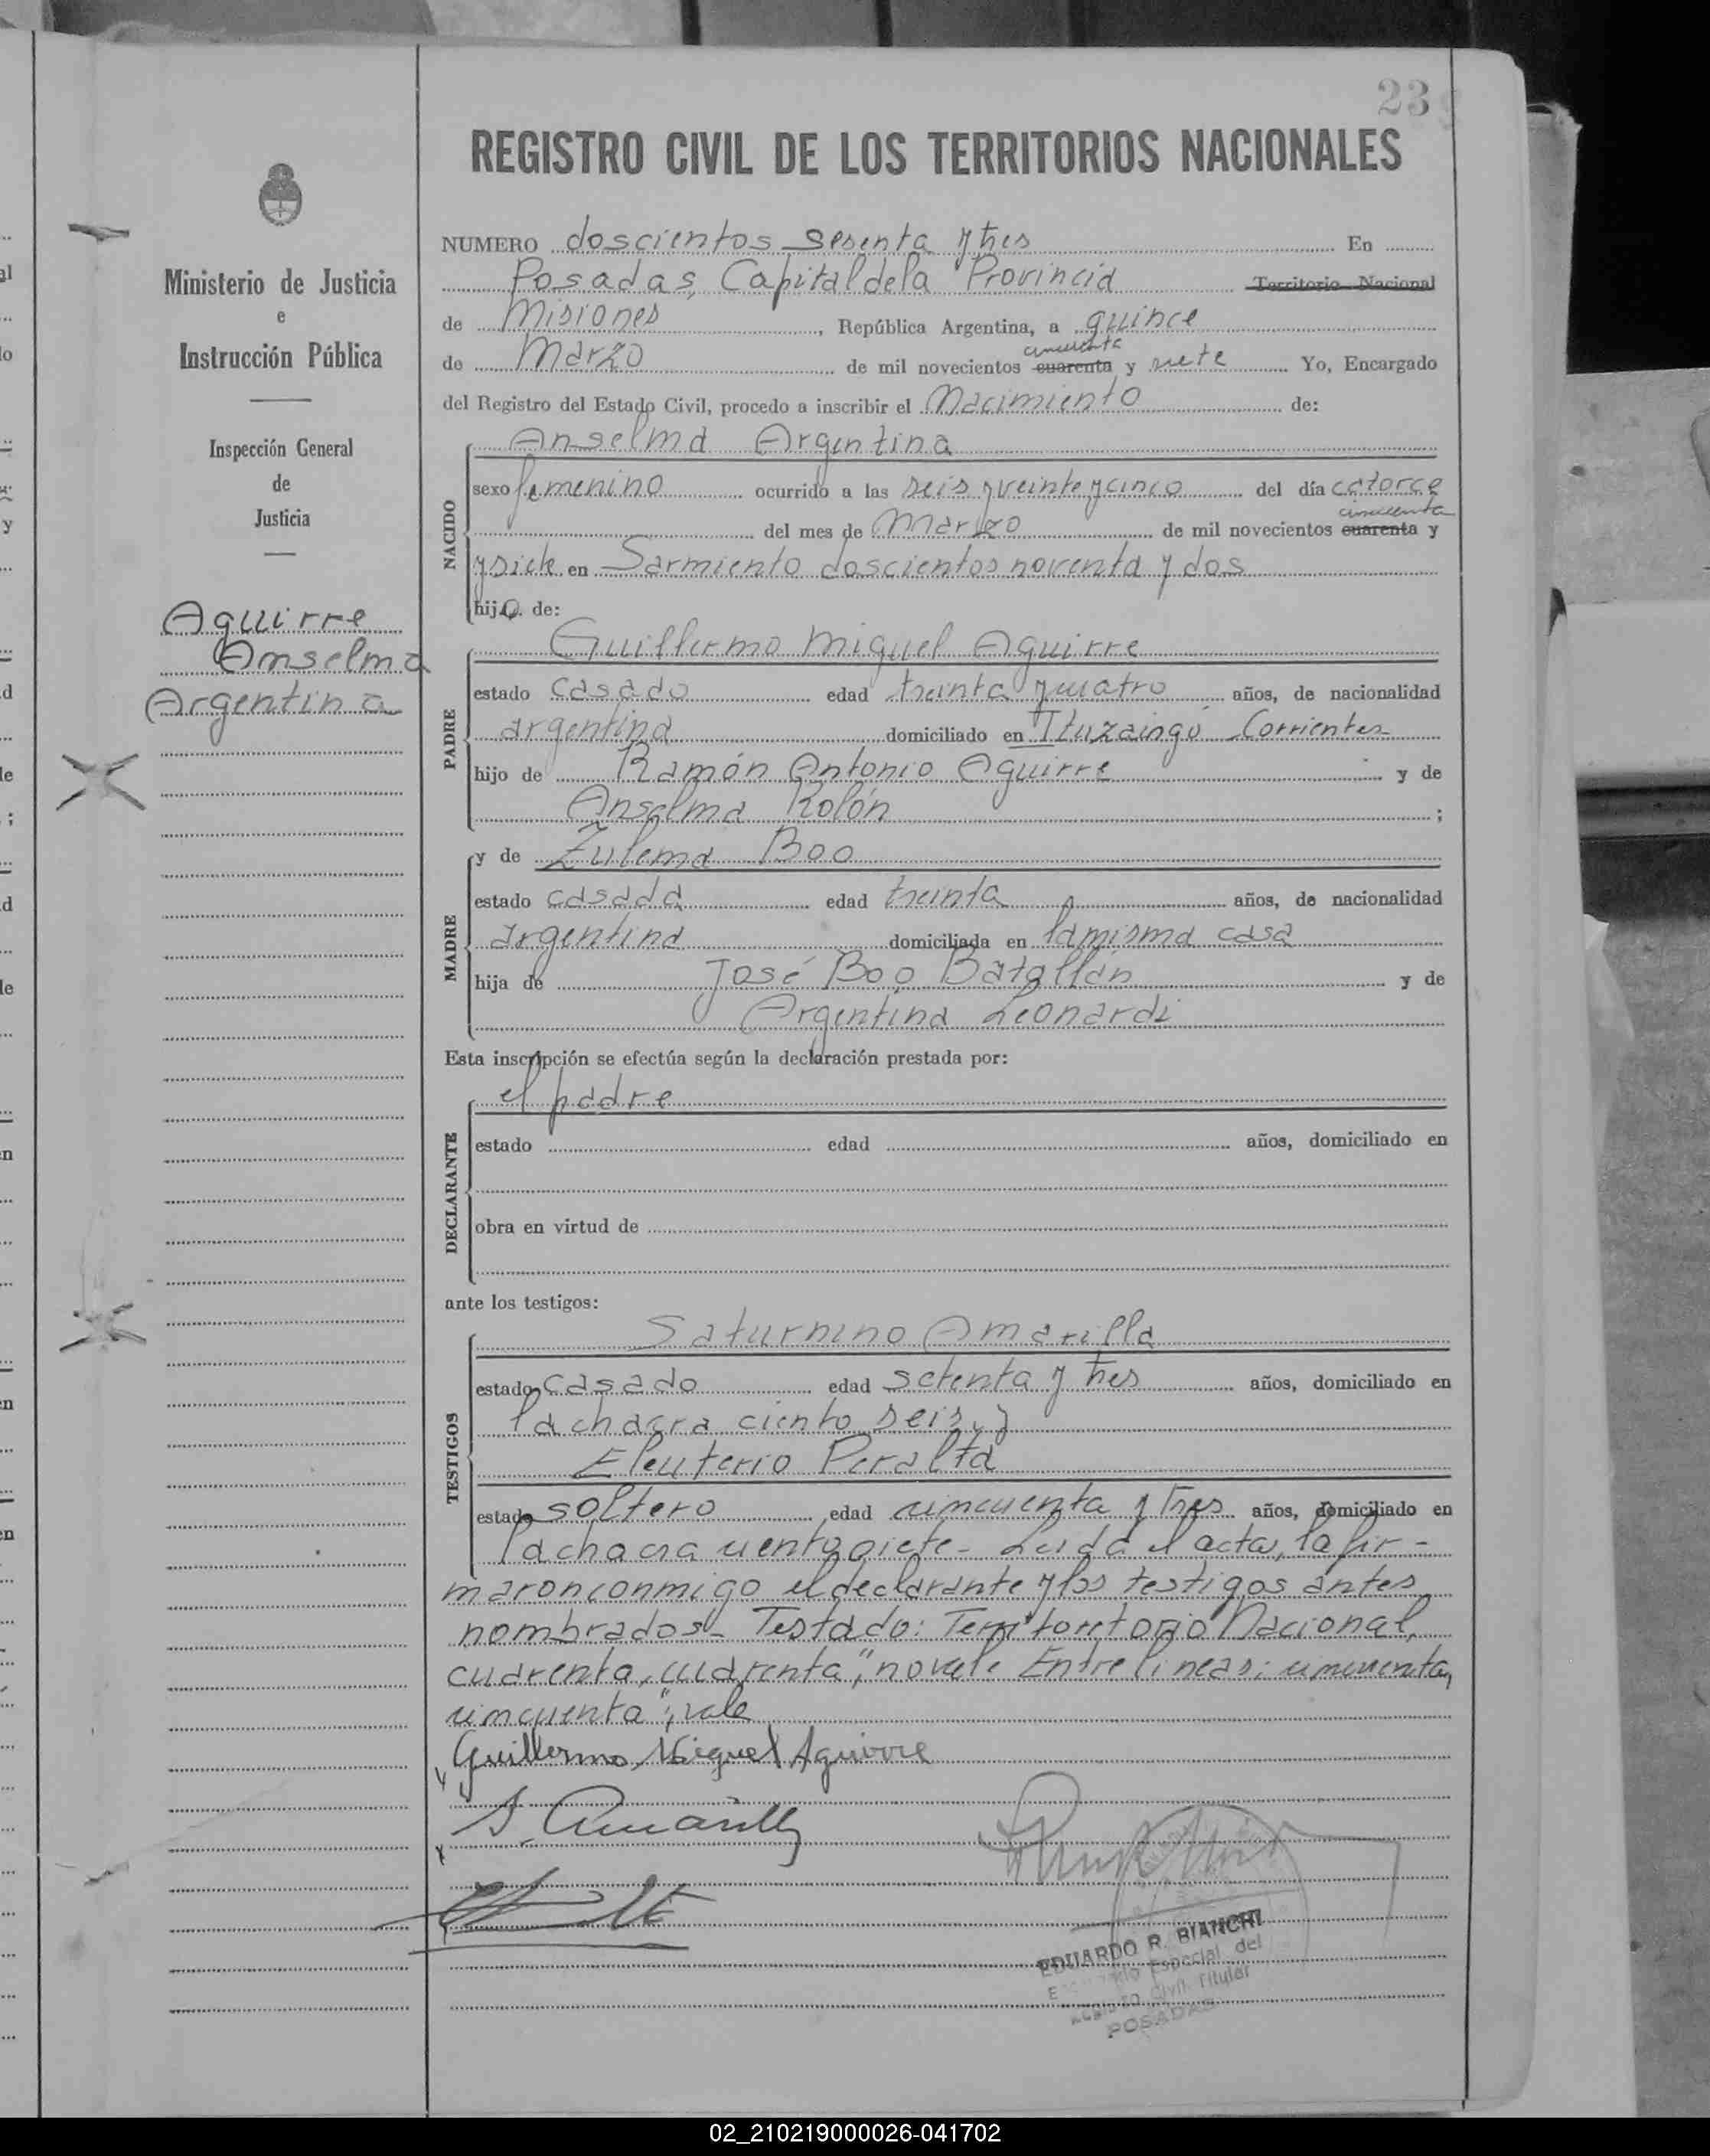 23
REGISTRO CIVIL DE LOS TERRITORIOS NACIONALES
Ministerio de Justicia
e
Instrucción Pública
Inspección General
de
Justicia
Aguirre
Anselma
Argentina
NUMERO doscientos sesenta y tres En
Posadas, Capital de la Provincia Territorio Nacional
de Misiones, República Argentina, a quince
cincuenta
de Marzo de mil novecientos cuarenta y siete Yo, Encargado
del Registro del Estado Civil, procedo a inscribir el Nacimiento de:
NACIDO
Anselma Argentina
sexo femenino ocurrido a las seis y veinte y cinco del día catorce
cincuenta
del mes de Marzo de mil novecientos cuarenta y
y siete en Sarmiento doscientos noventa y dos
hija de:
PADRE
Guillermo Miguel Aguirre
estado casado edad treinta y cuatro años, de nacionalidad
argentina domiciliado en Ituzaingó Corrientes
hijo de Ramón Antonio Aguirre y de
Anselma Rolón ;
MADRE
y de Zulema Boo
estado casada edad treinta años, de nacionalidad
argentina domiciliada en la misma casa
hija de José Boo Batallán y de
Argentina Leonardi
Esta inscripción se efectúa según la declaración prestada por:
DECLARANTE
el padre
estado edad años, domiciliado en
obra en virtud de
ante los testigos:
TESTIGOS
Saturnino Amarilla
estado casado edad setenta y tres años, domiciliado en
la chacra ciento seis, y
Eleuterio Peralta
estado soltero edad cincuenta y tres años, domiciliado en
la chacra ciento siete- Leida el acta, la fir-
maron conmigo el declarante y los testigos antes
nombrados- Testado: Territoretorio Nacional,
cuarenta, cuarenta", no vale Entre lineas: cincuenta,
cincuenta", vale
Guillermo Miguel Aguirre
S. Amarilla
EDUARDO R. BIANCHI
Especial del
Civil Titular
POSADAS
02_210219000026-041702